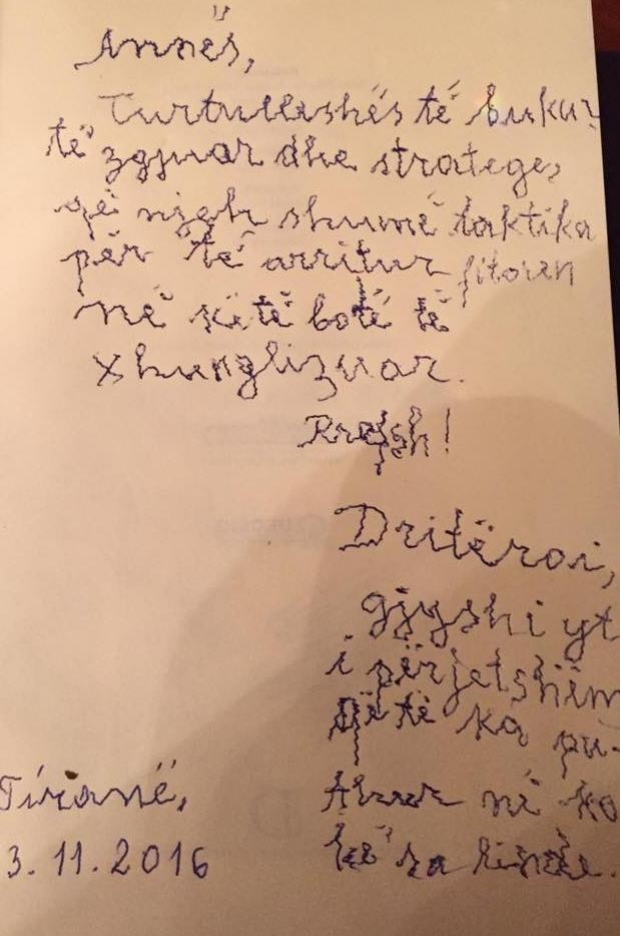 Annës,
Turtulleshës të bukur
të zgjuar dhe stratege,
që njeh shumë taktika
për të arritur fitoren
në këtë botë të
xhunglizuar.
Rrofsh!
Dritëroi,
gjyshi yt
i përjetshëm
që të ka pu-
thur në ko
kë sa linde.
Tiranë,
3.11.2016